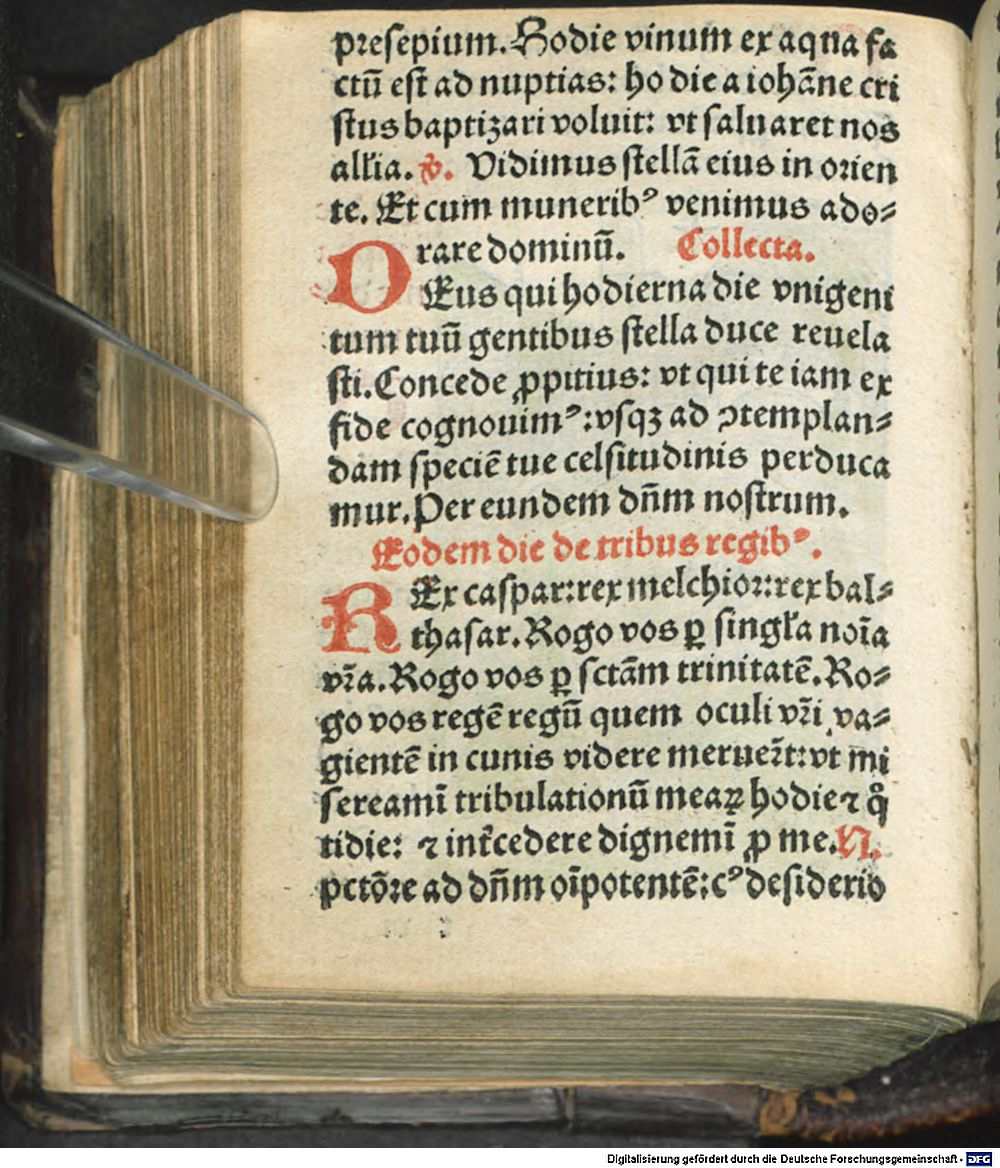 presepium. Hodie vinum ex aqua fa
ctū est ad nuptias: ho die a iohāne cri
stus baptizari voluit: vt saluaret nos
all'ia. ℣. Vidimus stellā eius in orien
te. Et cum muneribꝰ venimus ado⸗
rare dominū. Collecta.
DEus qui hodierna die vnigeni
tum tuū gentibus stella duce reuela
sti. Concede ꝓpitius: vt qui te iam ex
fide cognouimꝰ: vsqꝫ ad ꝯtemplan⸗
dam speciē tue celsitudinis perduca
mur. Per eundem dn̄m nostrum.
Eodem die de tribus regibꝰ.
REx caspar: rex melchior: rex bal⸗
thasar. Rogo vos ꝑ singl'a noīa
vr̄a. Rogo vos ꝑ sctām trinitatē. Ro⸗
go vos regē regū quem oculi vr̄i va⸗
gientē in cunis videre meruer̄t: vt mi
sereamī tribulationū meaꝝ hodie ⁊ qͦ
tidie: ⁊ int'cedere dignemī ꝓ me. N.
pctōre ad dn̄m oīpotentē: cꝰ desiderio
Digitalisierung gefördert durch die Deutsche Forschungsgemeinschaft - DFG